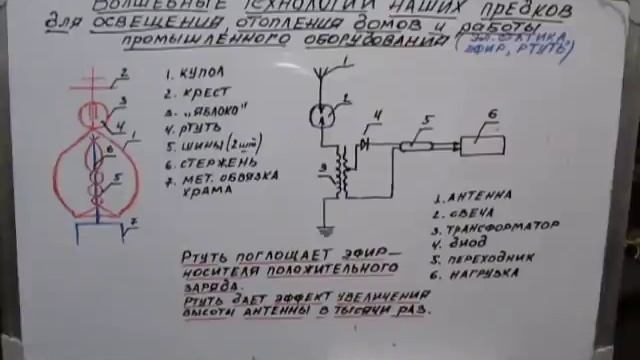 ВОЛШЕБНЫЕ ТЕХНОЛОГИИ НАШИХ ПРЕДКОВ
ДЛЯ ОСВЕЩЕНИЯ, ОТОПЛЕНИЯ ДОМОВ И РАБОТЫ
ПРОМЫШЛЕННОГО ОБОРУДОВАНИЯ (ЭЛ. СТАТИКА,
ЭФИР, РТУТЬ)
2
3
4
1
6
5
7
1. КУПОЛ
2. КРЕСТ
3. „ЯБЛОКО"
4. РТУТЬ
5. ШИНЫ (2 шт)
6. СТЕРЖЕНЬ
7. МЕТ. ОБВЯЗКА
ХРАМА
1
2
3
4
5
6
1. АНТЕННА
2. СВЕЧА
3. ТРАНСФОРМАТОР
4. ДИОД
5. ПЕРЕХОДНИК
6. НАГРУЗКА
РТУТЬ ПОГЛОЩАЕТ ЭФИР-
НОСИТЕЛЯ ПОЛОЖИТЕЛЬНОГО
ЗАРЯДА.
РТУТЬ ДАЕТ ЭФФЕКТ УВЕЛИЧЕНИЯ
ВЫСОТЫ АНТЕННЫ В ТЫСЯЧИ РАЗ.